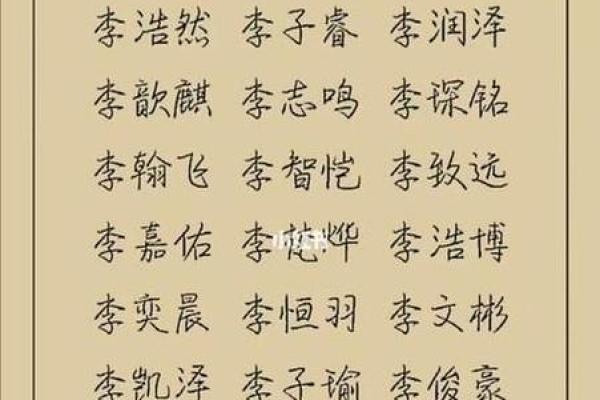 李浩然 李子睿 李润泽
李歆麒 李志鸣 李琛铭
李翰飞 李智恺 李致远
李嘉佑 李烨 李浩博
小红书
李奕晨 李恒羽 李文彬
李凯泽 李子瑜 李俊豪